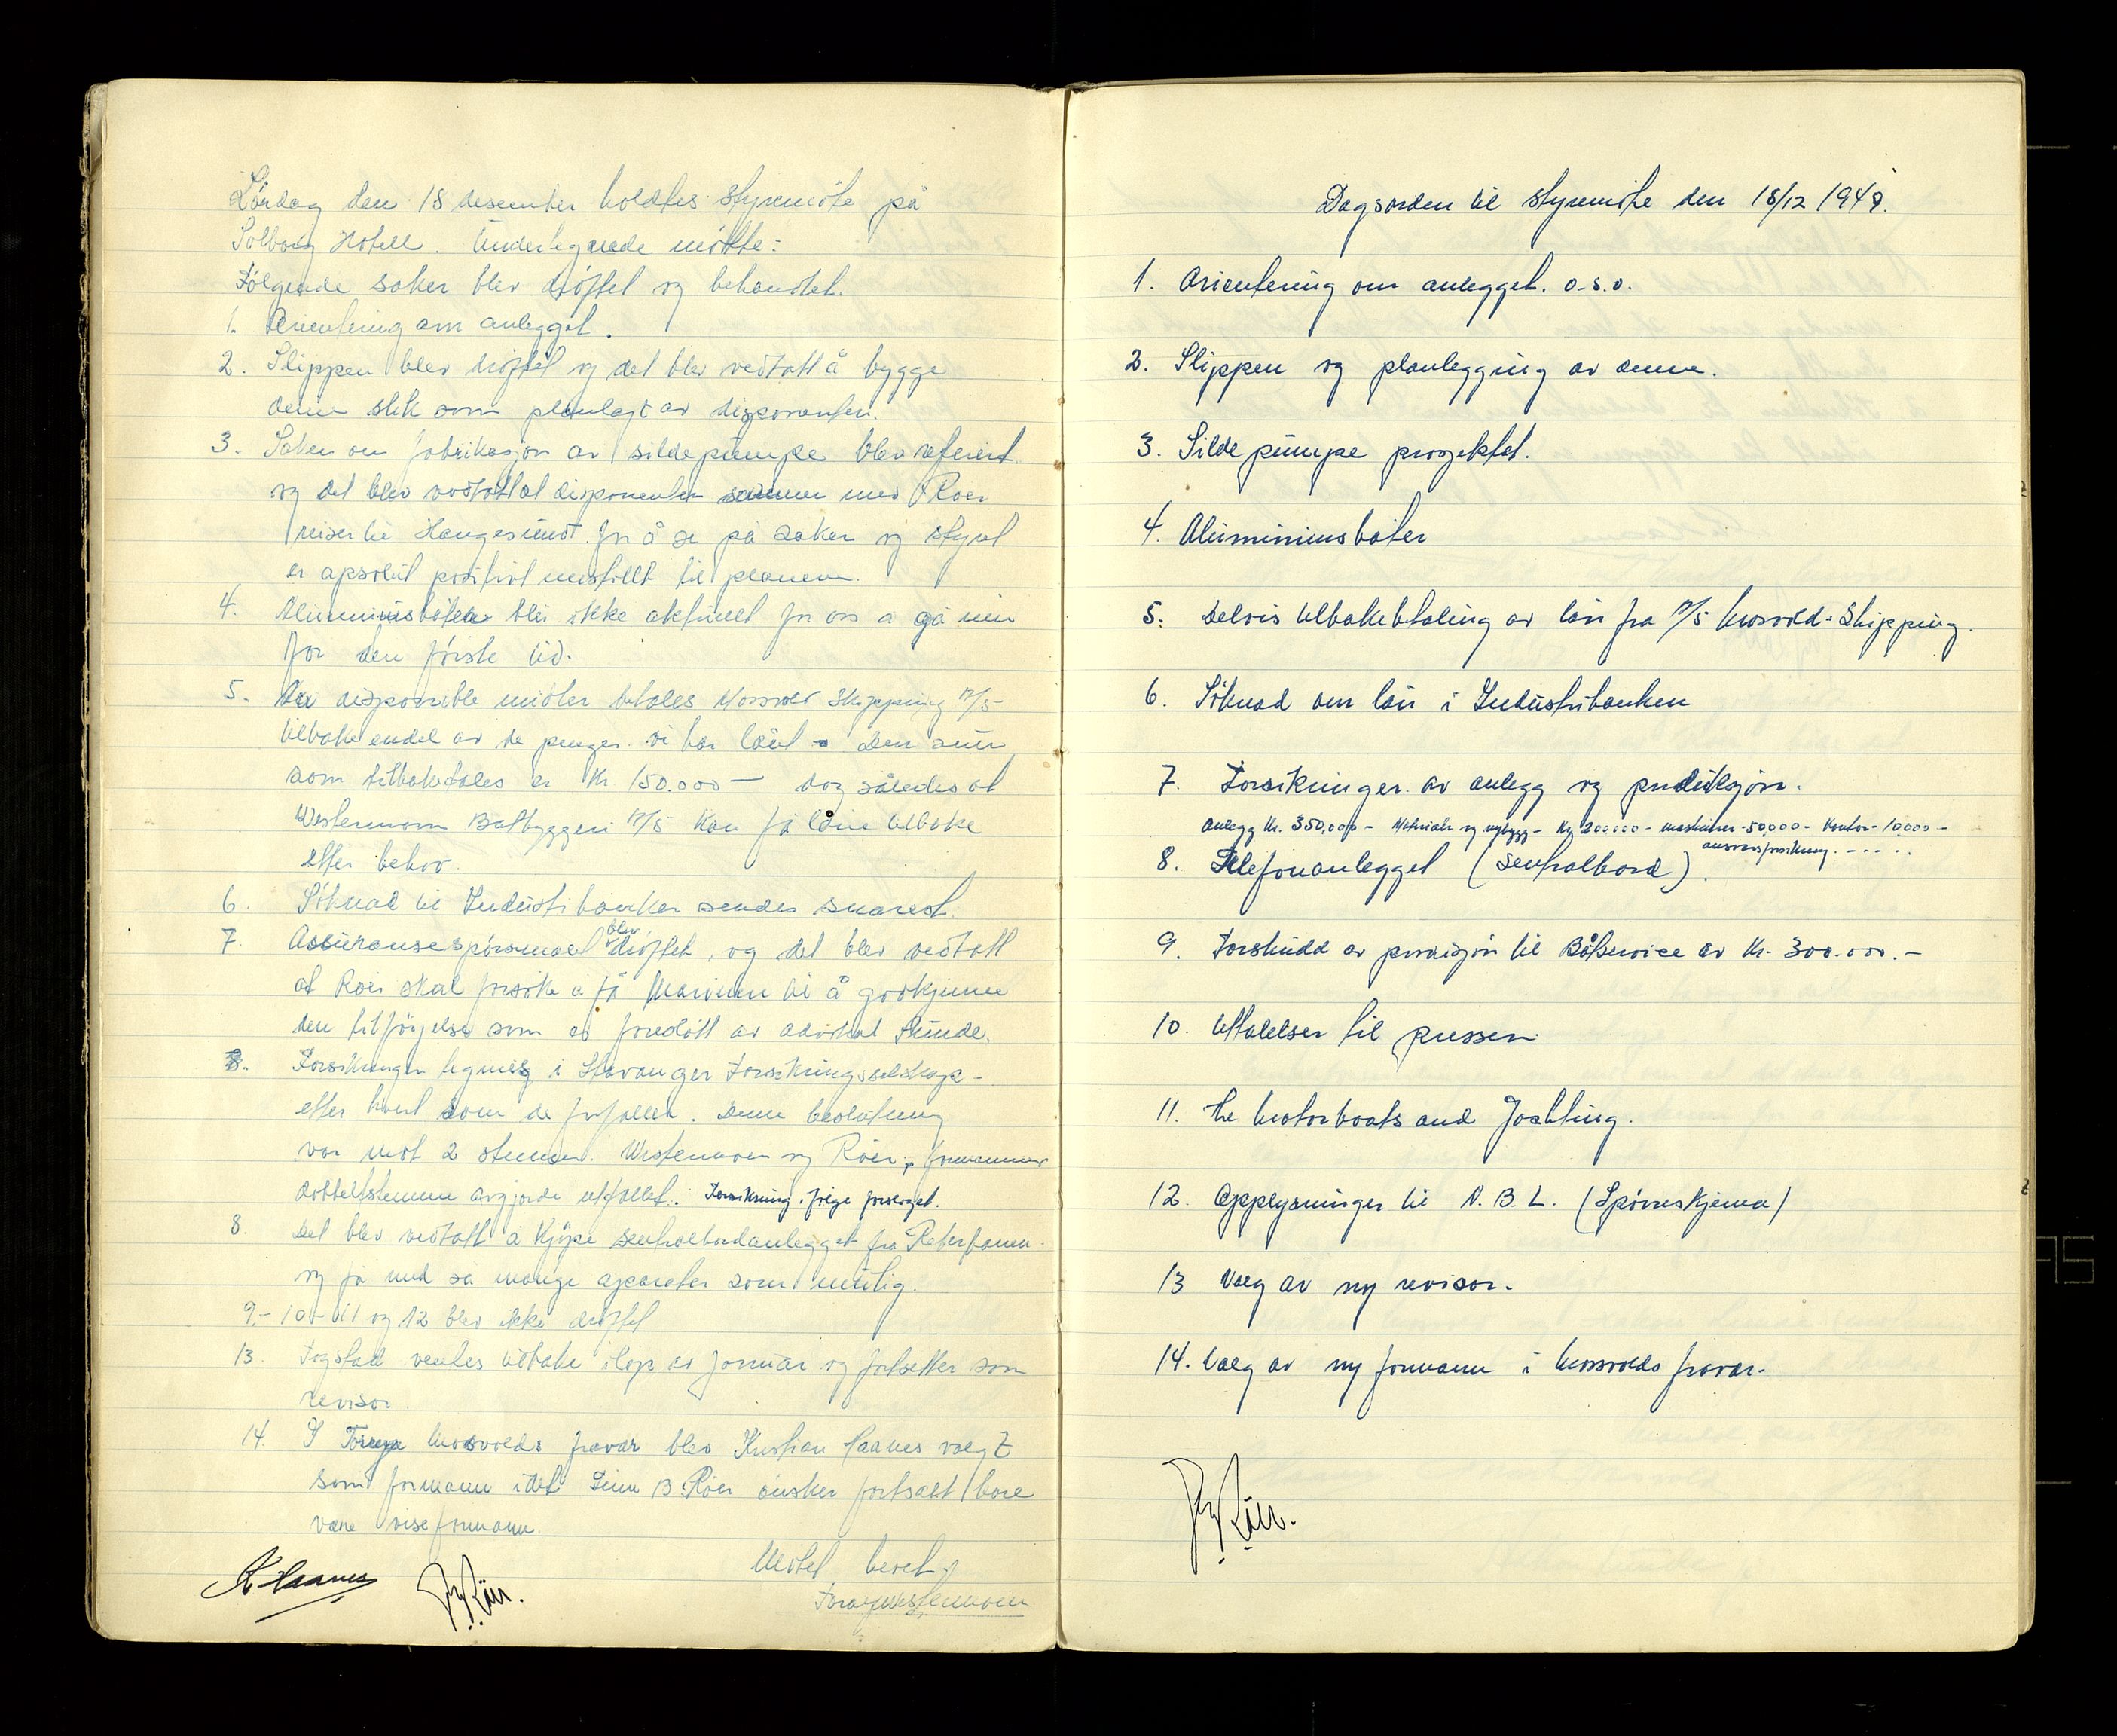 Lördag den 18 desember holdtes styremöte på
Solborg Hotell. Undertegnede mötte:
Fölgende saker blev dröftet og behandlet.
1. Orientering om anlegget.
2. Slippen blev dröftet og det blev vedtatt å bygge
denne slik som planlagt av disponenten.
3. Saken om fabrikasjon av sildepumpe blev referert
og det blev vedtatt at disponenten sammen med Röer
reiser til Haugesund for å se på saken og styret
er apsolut positivt instillt til planen.
4. Aluminiusbåter blir ikke aktuelt for oss å gå inn
for den förste tid.
5. Av disponible midler betales Mosvold Shipping A/S
tilbake endel av de penger vi har lånt - Den sum
som tilbakebetales er Kr. 150.000 — dog således at
Westermoen Båtbyggeri A/S kan få låne tilbake
etter behov.
6. Söknad til Industribanken sendes snarest.
7. Assuransespörsmaal blev dröftet, og det blev vedtatt
at Röer skal forsöke å få Marinen til å godkjenne
den tilföyelse som er foreslått av advokat Sunde.
8. Forsikringen tegnes i Stavanger Forsikringsselskap -
etter hvert som de forfaller. Denne beslutning
var mot 2 stemmer. Westermoen og Röer, formannens
dobbeltstemme avgjorde utfallet. Forsikring i fölge forslaget.
8. Det blev vedtatt å kjöpe sentralbordanlegget fra
og få med så mange aparater som mulig.
9.- 10 - 11 og 12 blev ikke dröftet
13. Fogstad ventes tilbake i löp av januar og fortsetter som
revisor.
14. I Mosvolds fravær blev Kristian Haanes valgt
som formann idet Finn B. Röer önsker fortsatt bare
være viseformann.
Mötet hevet.
K Haanes
Röer.
Dagsorden til styremöte den 18/12 1948.
1. Orientering om anlegget. o.s.v.
2. Slippen og planlegging av denne.
3. Silde pumpe prosjektet.
4. Aluminiumsbåter
5. Delvis tilbakebetaling av lån fra A/S Mosvold-Shipping.
6. Söknad om lån i Industribanken
7. Forsikringer av anlegg og produksjon.
Anlegg Kr. 350,000 - Materiale og nybygg - Kr. 200.000 - maskiner - 50.000 - Kontor - 10.000 -
ansvarsforsikring. - - - - .
8. Telefonanlegget (Sentralbord).
9. Forskudd av provisjon til Båtservice av Kr. 300.000.-
10. Uttalelser til pressen.
11. The Motorboats and Jachting.
12. Opplysninger til N. B. L. (Spörreskjema)
13 Valg av ny revisor.
14. Valg av ny formann i Mosvolds fravær.
Röer.